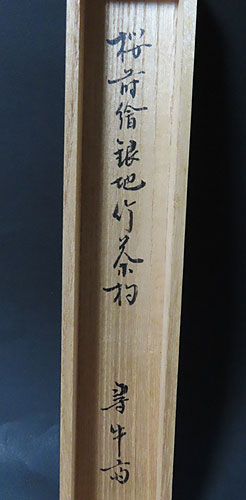 桜蒔繪銀地竹茶杓
尋牛斎